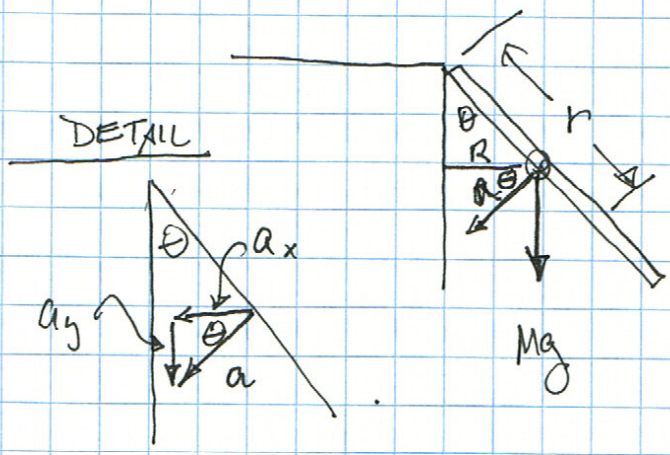 DETAIL
θ
a_x
θ
a_y
a
θ
r
R
a
θ
Mg